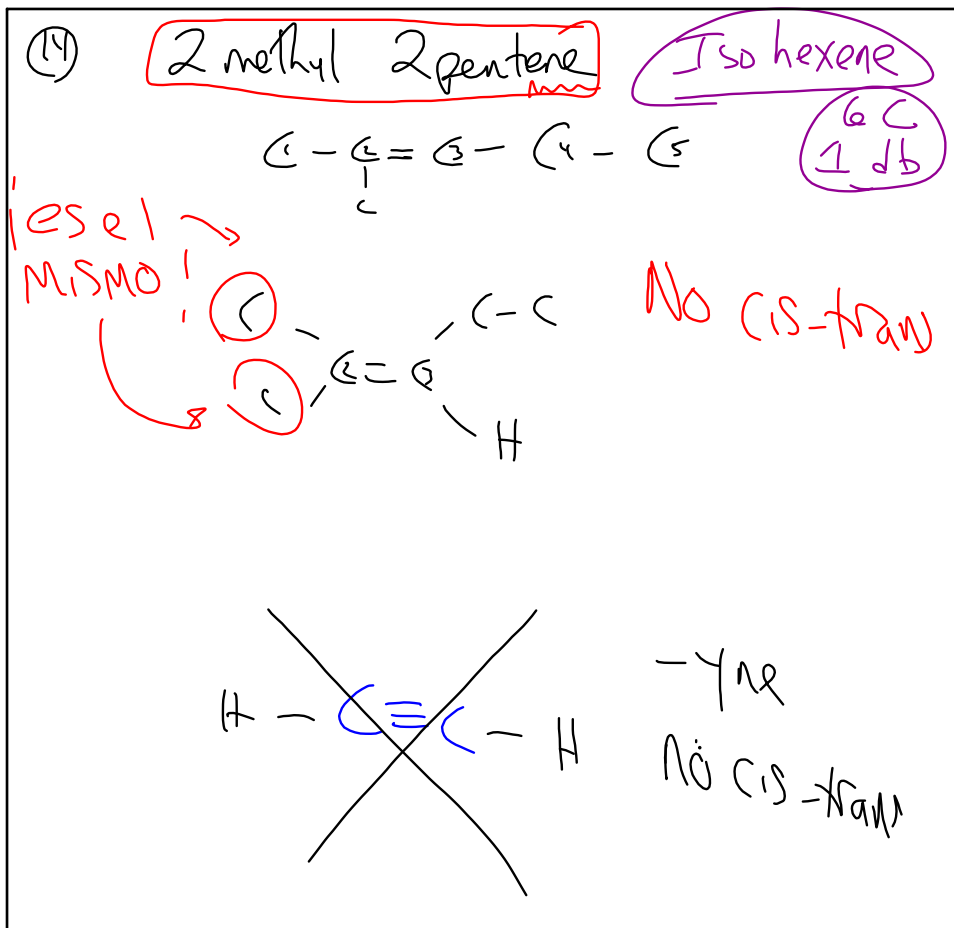 14
2 methyl 2 pentene
Iso hexene
6 C
1 db
C1 - C2 = C3 - C4 - C5
C
¡es el
mismo!
C
C - C
C2 = C3
C
H
No cis-trans
H - C ≡ C - H
-yne
No cis-trans